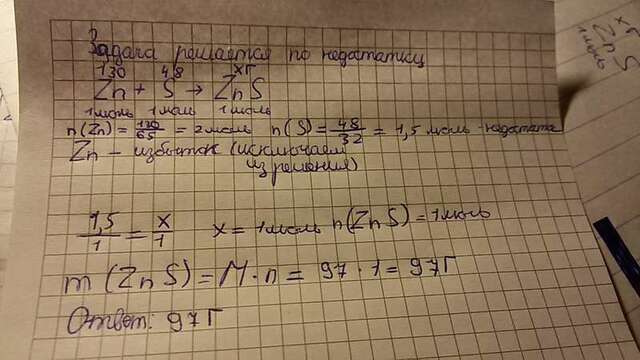 Задача решается по недостатку
130 48 хг
Zn + S → ZnS
1моль 1моль 1моль
n(Zn) = 130/65 = 2моль n(S) = 48/32 = 1,5 моль - недостаток
Zn - избыток (исключаем
из решения)
1,5/1 = x/1 x = 1моль n(ZnS) = 1моль
m(ZnS) = M · n = 97 · 1 = 97г
Ответ: 97г
x г
Zn S
1моль